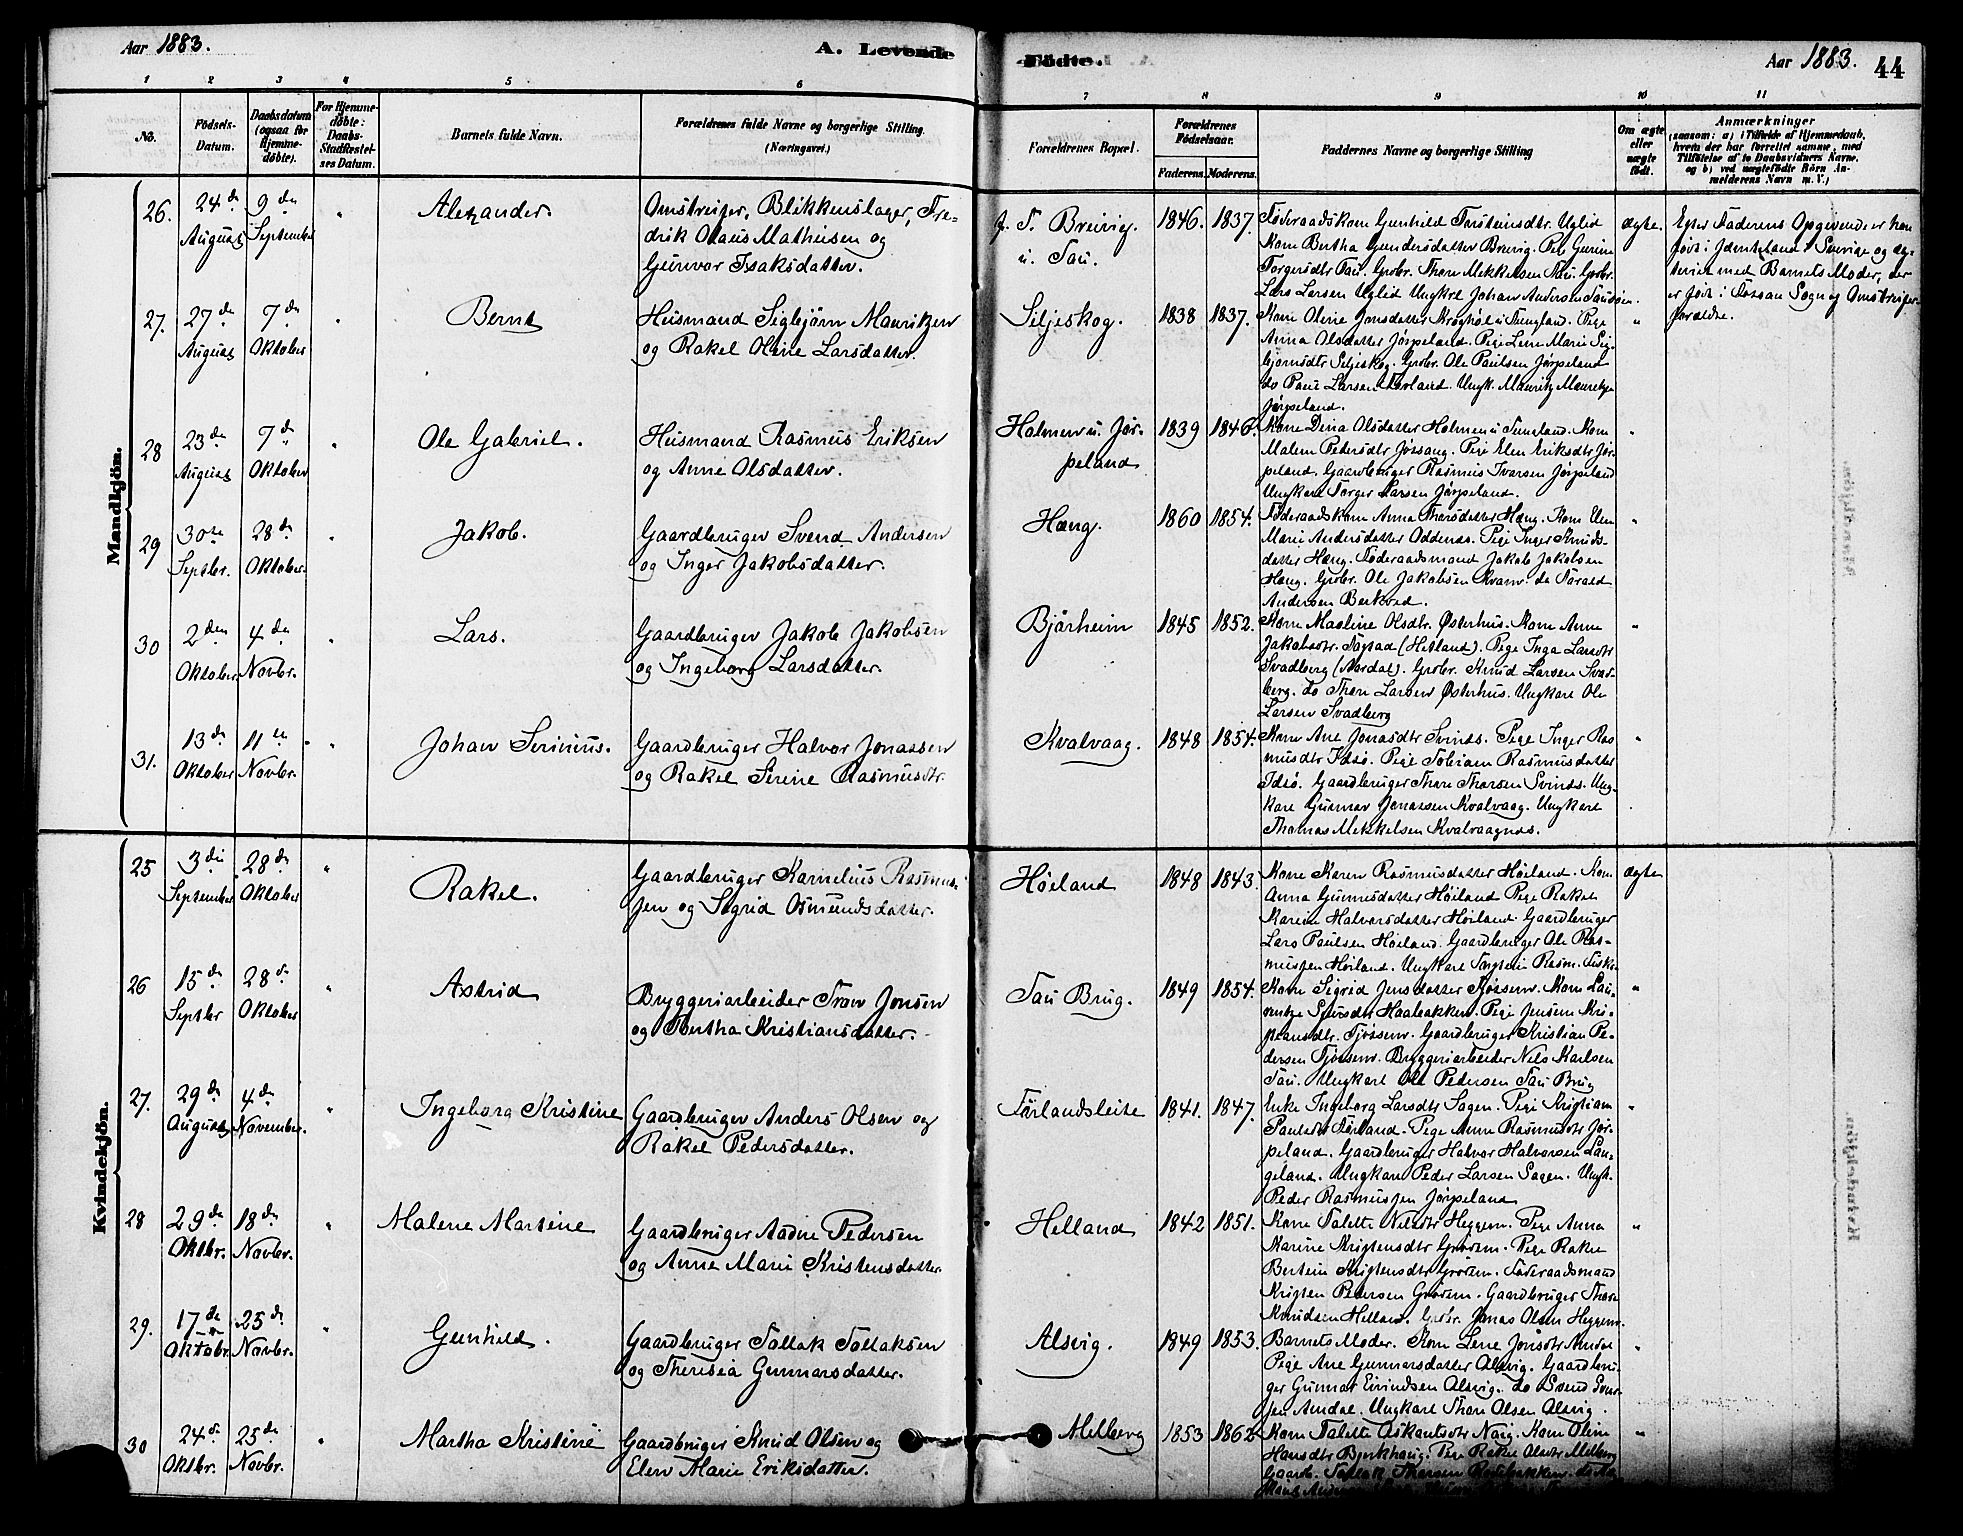 Aar 1883.
A. Levende
Fødte.
Aar 1883.
44
1 2 3 4 5 6 7 8 9 10 11
No.
Fødsels-Datum.
Daabsdatum (ogsaa for Hjemmedøbte).
For Hjemmedøbte: Daabs-Stadfæstelses Datum.
Barnets fulde Navn.
Forældrenes fulde Navne og borgerlige Stilling.
(Næringsvei.)
Forældrenes Bopæl.
Forældrenes Fødselsaar.
Faderens. Moderens.
Faddernes Navne og borgerlige Stilling
Om ægte eller uægte født.
Anmærkninger
(saasom: a) i Tilfælde af Hjemmedaab, hvem der har forrettet samme, med Tilføielse af to Daabsvidners Navne, og b) ved uægtefødte Børn Anmelderens Navn m. V.)
Mandkjön.
26. 24de August 9de September " Alexander.
Omstreifer, Blikkenslager, Fre-
drik Olaus Mathisen og
Gunvor Isaksdatter.
f. T. Breivig.
u. Tau.
1846. 1837.
Føderaadskone Gunhild Torsteinsdtr. Uglid
Kone Bertha Gundersdatter Brevig. Pige Gurine
Torgersdtr Tau. Grdbr. Thore Mikkelsen Tau. Grdbr.
Lars Larsen Uglid Ungkrl Johan Andersen
ægte.
Efter Faderens Opgivende er han
født i Jemteland i Sverige og
med Barnets Moder, der
er født i Fossan Sogn af Omstreifer-
forældre.
27. 27de August 7de Oktober " Bernt
Husmand Sigbjørn Mauritzen
og Rakel Oline Larsdatter.
Seljeskog.
1838 1837.
Kone Oline Jonsdatter
Anna Olsdatter Jørpeland. Pige Lene Marie Sig-
bjørnsdtr Seljeskog. Grdbr. Ole Paulsen Jørpeland
do Paul Larsen Førland. Ungk. Mauritz Mauritzen
Jørpeland.
"
28 23de August 7de Oktober " Ole Gabriel.
Husmand Rasmus Eriksen
og Anne Olsdatter.
Holmen u. Jør-
peland
1839 1846.
Kone Dina Olsdatter Holmen u Kone
Malene Pedersdtr Jøssang. Pige Elen Eriksdtr Jør-
peland. Gaardbruger Rasmus Ivarsen Jørpeland
Ungkarl Torger Larsen Jørpeland.
"
29 30te Septbr. 28de Oktober " Jakob.
Gaardbruger Svend Andersen
og Inger Jakobsdatter.
Hæng.
1860 1854.
Føderaadskone Anna Thorsdatter Hæng. Kone Elen
Marie Andersdatter Oddenes. Pige Inger Knuds-
datter Hæng. Føderaadsmand Jakob Jakobsen
Hæng. Grdbr. Ole Jakobsen Kvam. do
Andersen Berkved.
"
30 2den Oktober 4de Novbr. " Lars.
Gaardbruger Jakob Jakobsen
og Ingeborg Larsdatter.
Bjørheim
1845 1852.
Kone Maline Olsdtr. Østerhus. Kone Anne
Jakobsdtr. (Hetland). Pige Inga Larsdtr
Svadberg (Aardal). Grdbr. Knud Larsen Svad-
berg. do Thore Larsen Østerhus. Ungkarl Ole
Larsen Svadberg
"
31. 13de Oktober 11te Novbr. " Johan Serinius.
Gaardbruger Halvor Jonassen
og Rakel Serine Rasmusdtr.
Kvalvaag.
1848 1854.
Kone Ane Jonasdtr Svinds. Pige Inger Ras
musdtr Idsø. Pige Rasmusdatter
Idsø. Gaardbruger Thore Thorsen Svinds. Ung-
karl Gunnar Jonassen Kvalvaag. Ungkarl
Thomas Mikkelsen Kvalvaagnes.
"
Kvindekjön.
25 3die September 28de Oktober " Rakel.
Gaardbruger Kornelius Rasmus-
sen og Sigrid Osmundsdatter.
Høiland
1848 1843.
Kone Karen Rasmusdatter Høiland. Kone
Anna Gunnesdatter Høiland Pige Rakel
Karine Halvorsdatter Høiland. Gaardbruger
Lars Paulsen Høiland. Gaardbruger Ole Ras-
mussen Høiland. Ungkarl Torstein Rasm. Fiskaa
ægte
26 15de Septbr 28de Oktober " Astrid
Bryggeriarbeider Tron Jonsen
og Bertha Kristiansdatter.
Tau Brug.
1849 1854.
Kone Sigrid Jensdatter Tjøssem. Kone
Haabakken. Pige Jensine Kri-
stiansdtr. Tjøssem. Gaardbruger Kristian Pe-
dersen Tjøssem. Bryggeriarbeider Nels Karlsen
Tau. Ungkarl Ole Pedersen Tau Brug
"
27. 29de August 4de November. " Ingeborg Kristine
Gaardbruger Anders Olsen og
Rakel Pedersdatter.
Førlandsleite
1841. 1847.
Enke Ingeborg Larsdtr Sagen. Pige Kristiane
Paulsdtr Førland. Pige Anne Rasmusdtr Jør-
peland. Gaardbruger Halvor Halvorsen Lan-
geland. Ungkarl Peder Larsen Sagen. Ungk.
Peder Rasmussen Jørpeland
"
28 29de Oktbr. 18de Novbr. " Malene Martine
Gaardbruger Aadne Pedersen
og Anne Marie Kristensdatter
Helland
1842 1851.
Kone Talette Nelsdtr Heggem. Pige Anna
Karine Kristensdtr Grødem. Pige Rakel
Bertine Kristensdtr Grødem. Føderaadsmand
Kristen Pedersen Grødem. Gaardbruger Thore
Knudsen Helland. Grdbr. Jonas Olsen Heggem.
"
29. 17de Oktobr. 25de Novbr. " Gunhild.
Gaardbruger Tollak Tollaksen
og Theresia Gunnarsdatter.
Alsvig.
1849 1853.
Barnets Moder. Kone Lene Jonsdtr Amdal
Pige Ane Gunnarsdatter Alsvig. Gaardbru-
ger Gunnar Eivindsen Alsvig. do Svend Svend-
sen Amdal. Ungkarl Thore Olsen Alsvig.
"
30 24de Oktbr. 25de Novbr. " Martha Kristine
Gaardbruger Knud Olsen og
Elen Marie Eriksdatter.
Melberg
1853 1862
Kone Talette Kone Oline
Hansdtr Bjerkhaug. Pige Rakel Olsdtr Melberg
Gaardb. Tollak Thorsen
"